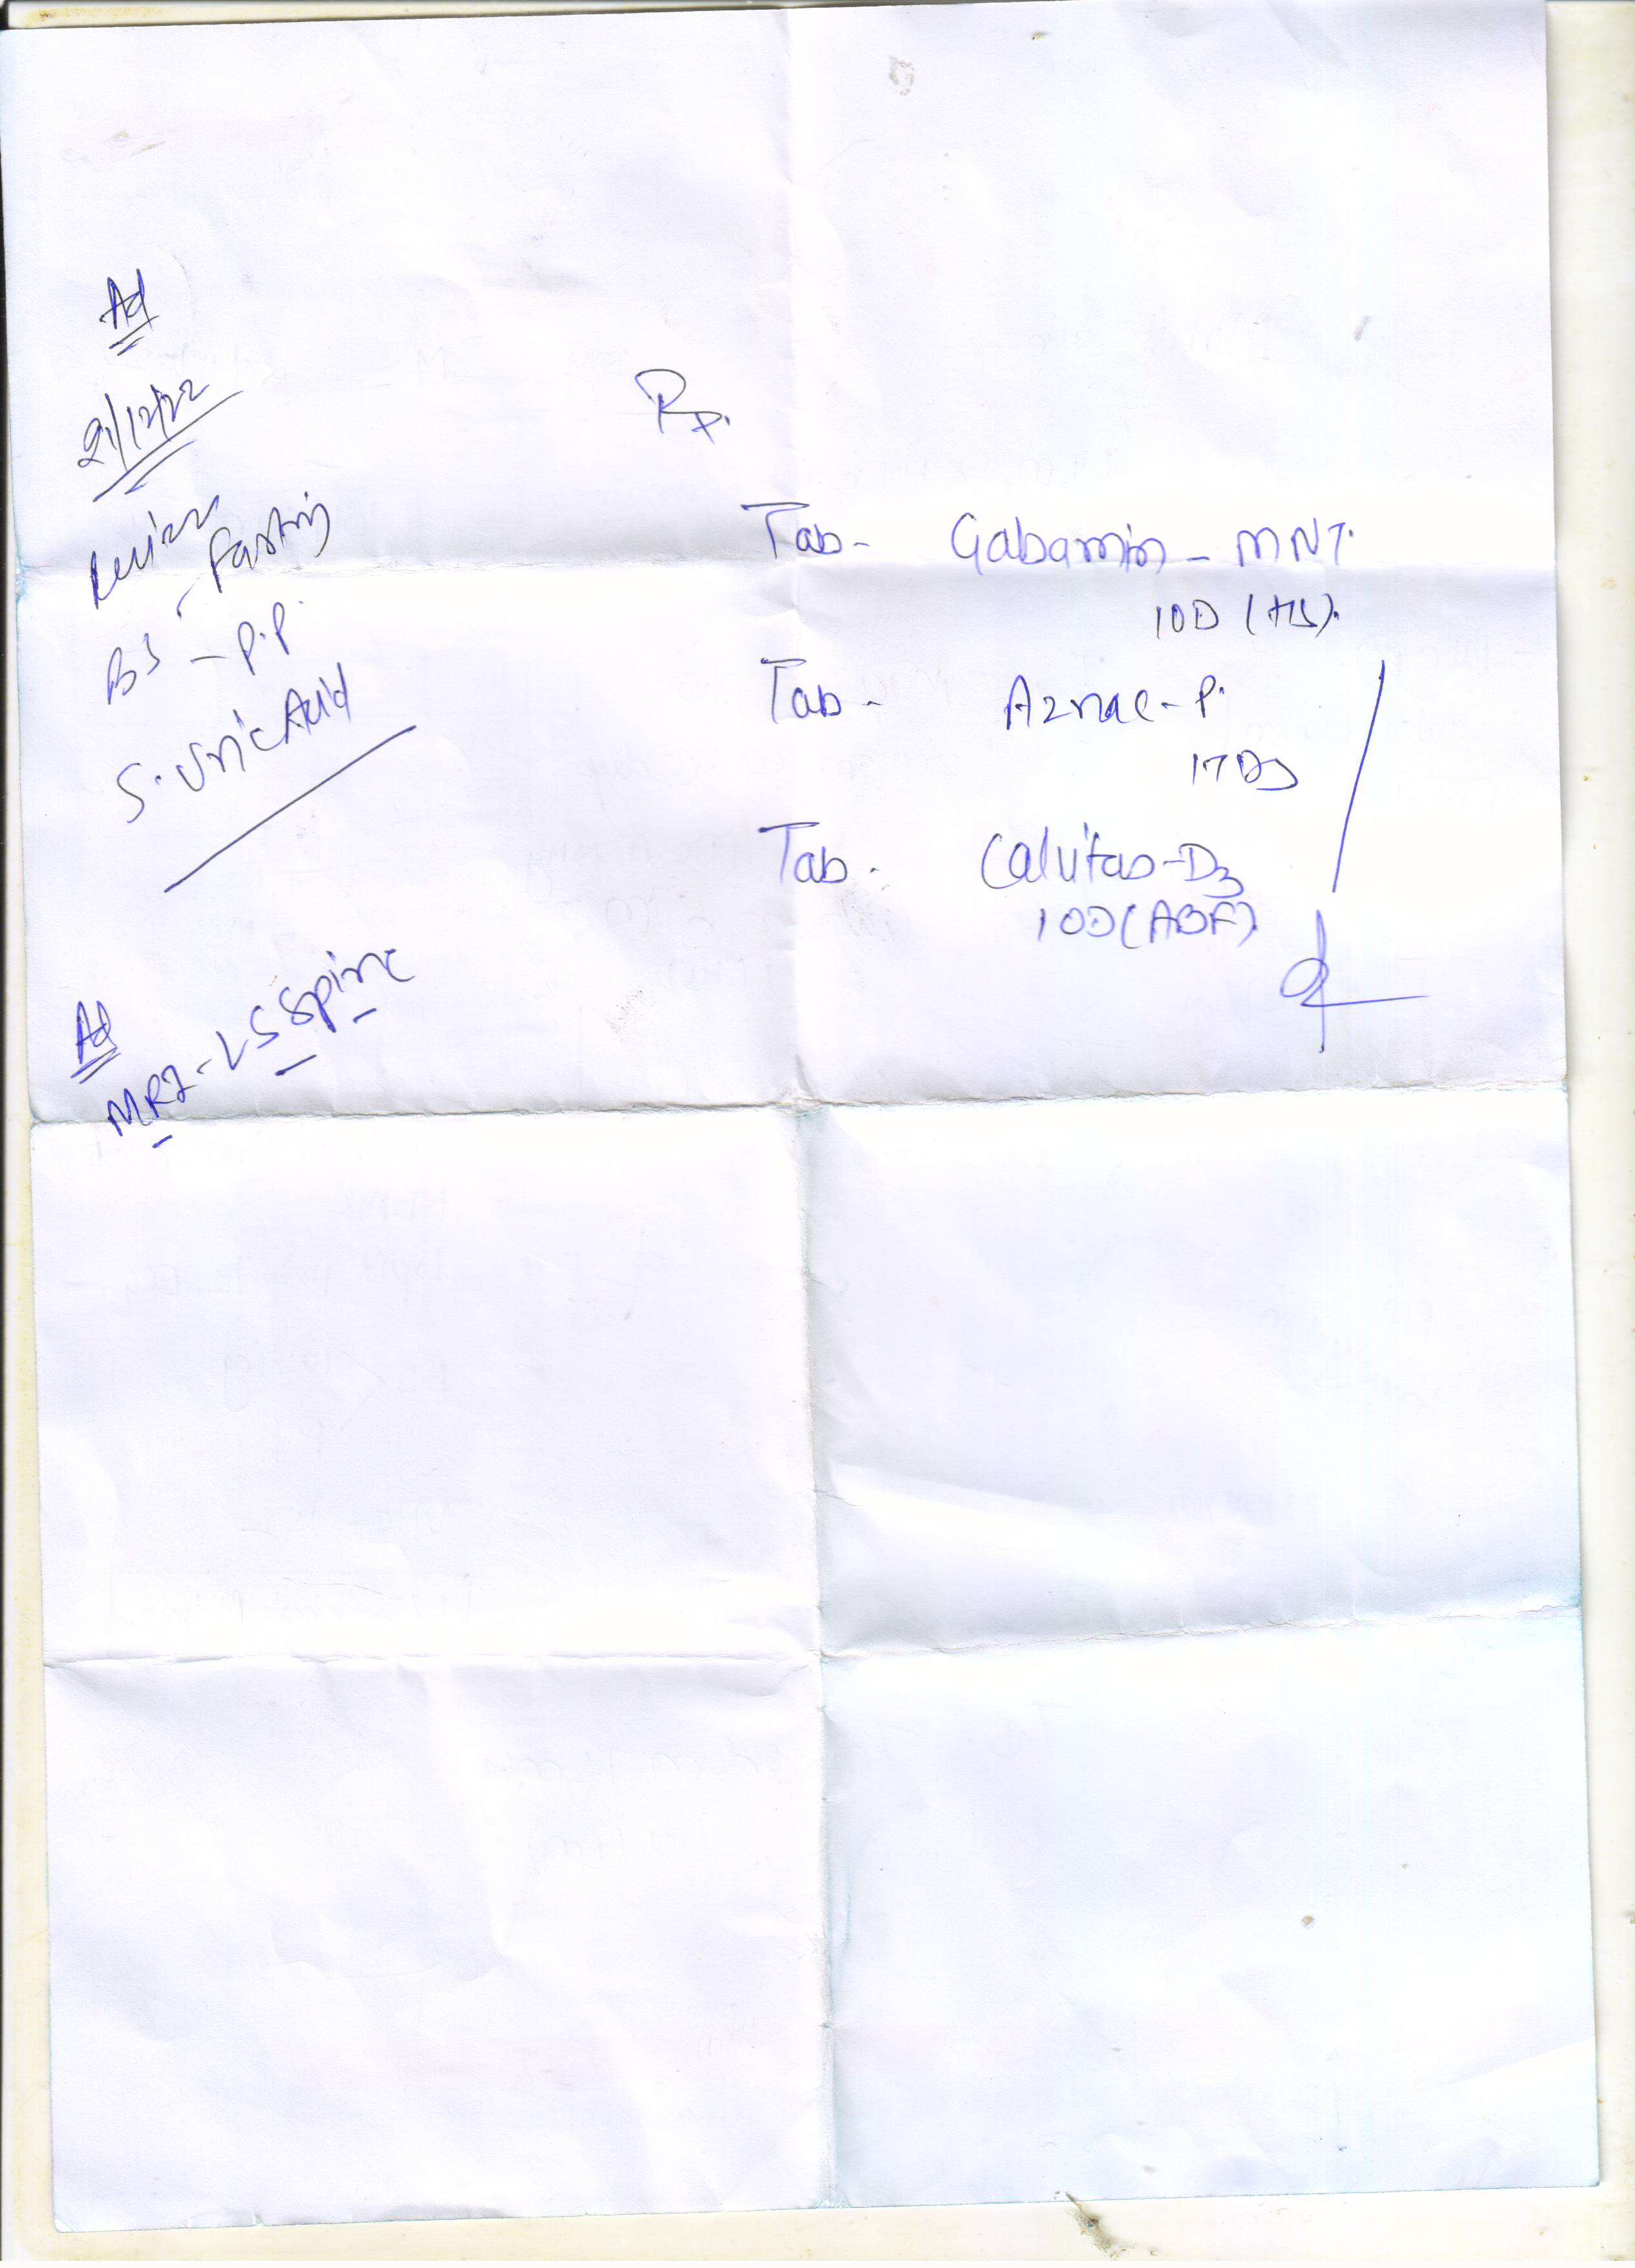 Ad
21/12/22
Review
BS - Fasting
- P.P.
S. Uric Acid
Ad
MRI - LS Spine
Rx.
Tab - Gabamin - MNT.
1OD (HS).
Tab - Aznac - P.
1TDS
Tab. Calvitas-D3
1OD (ABF).